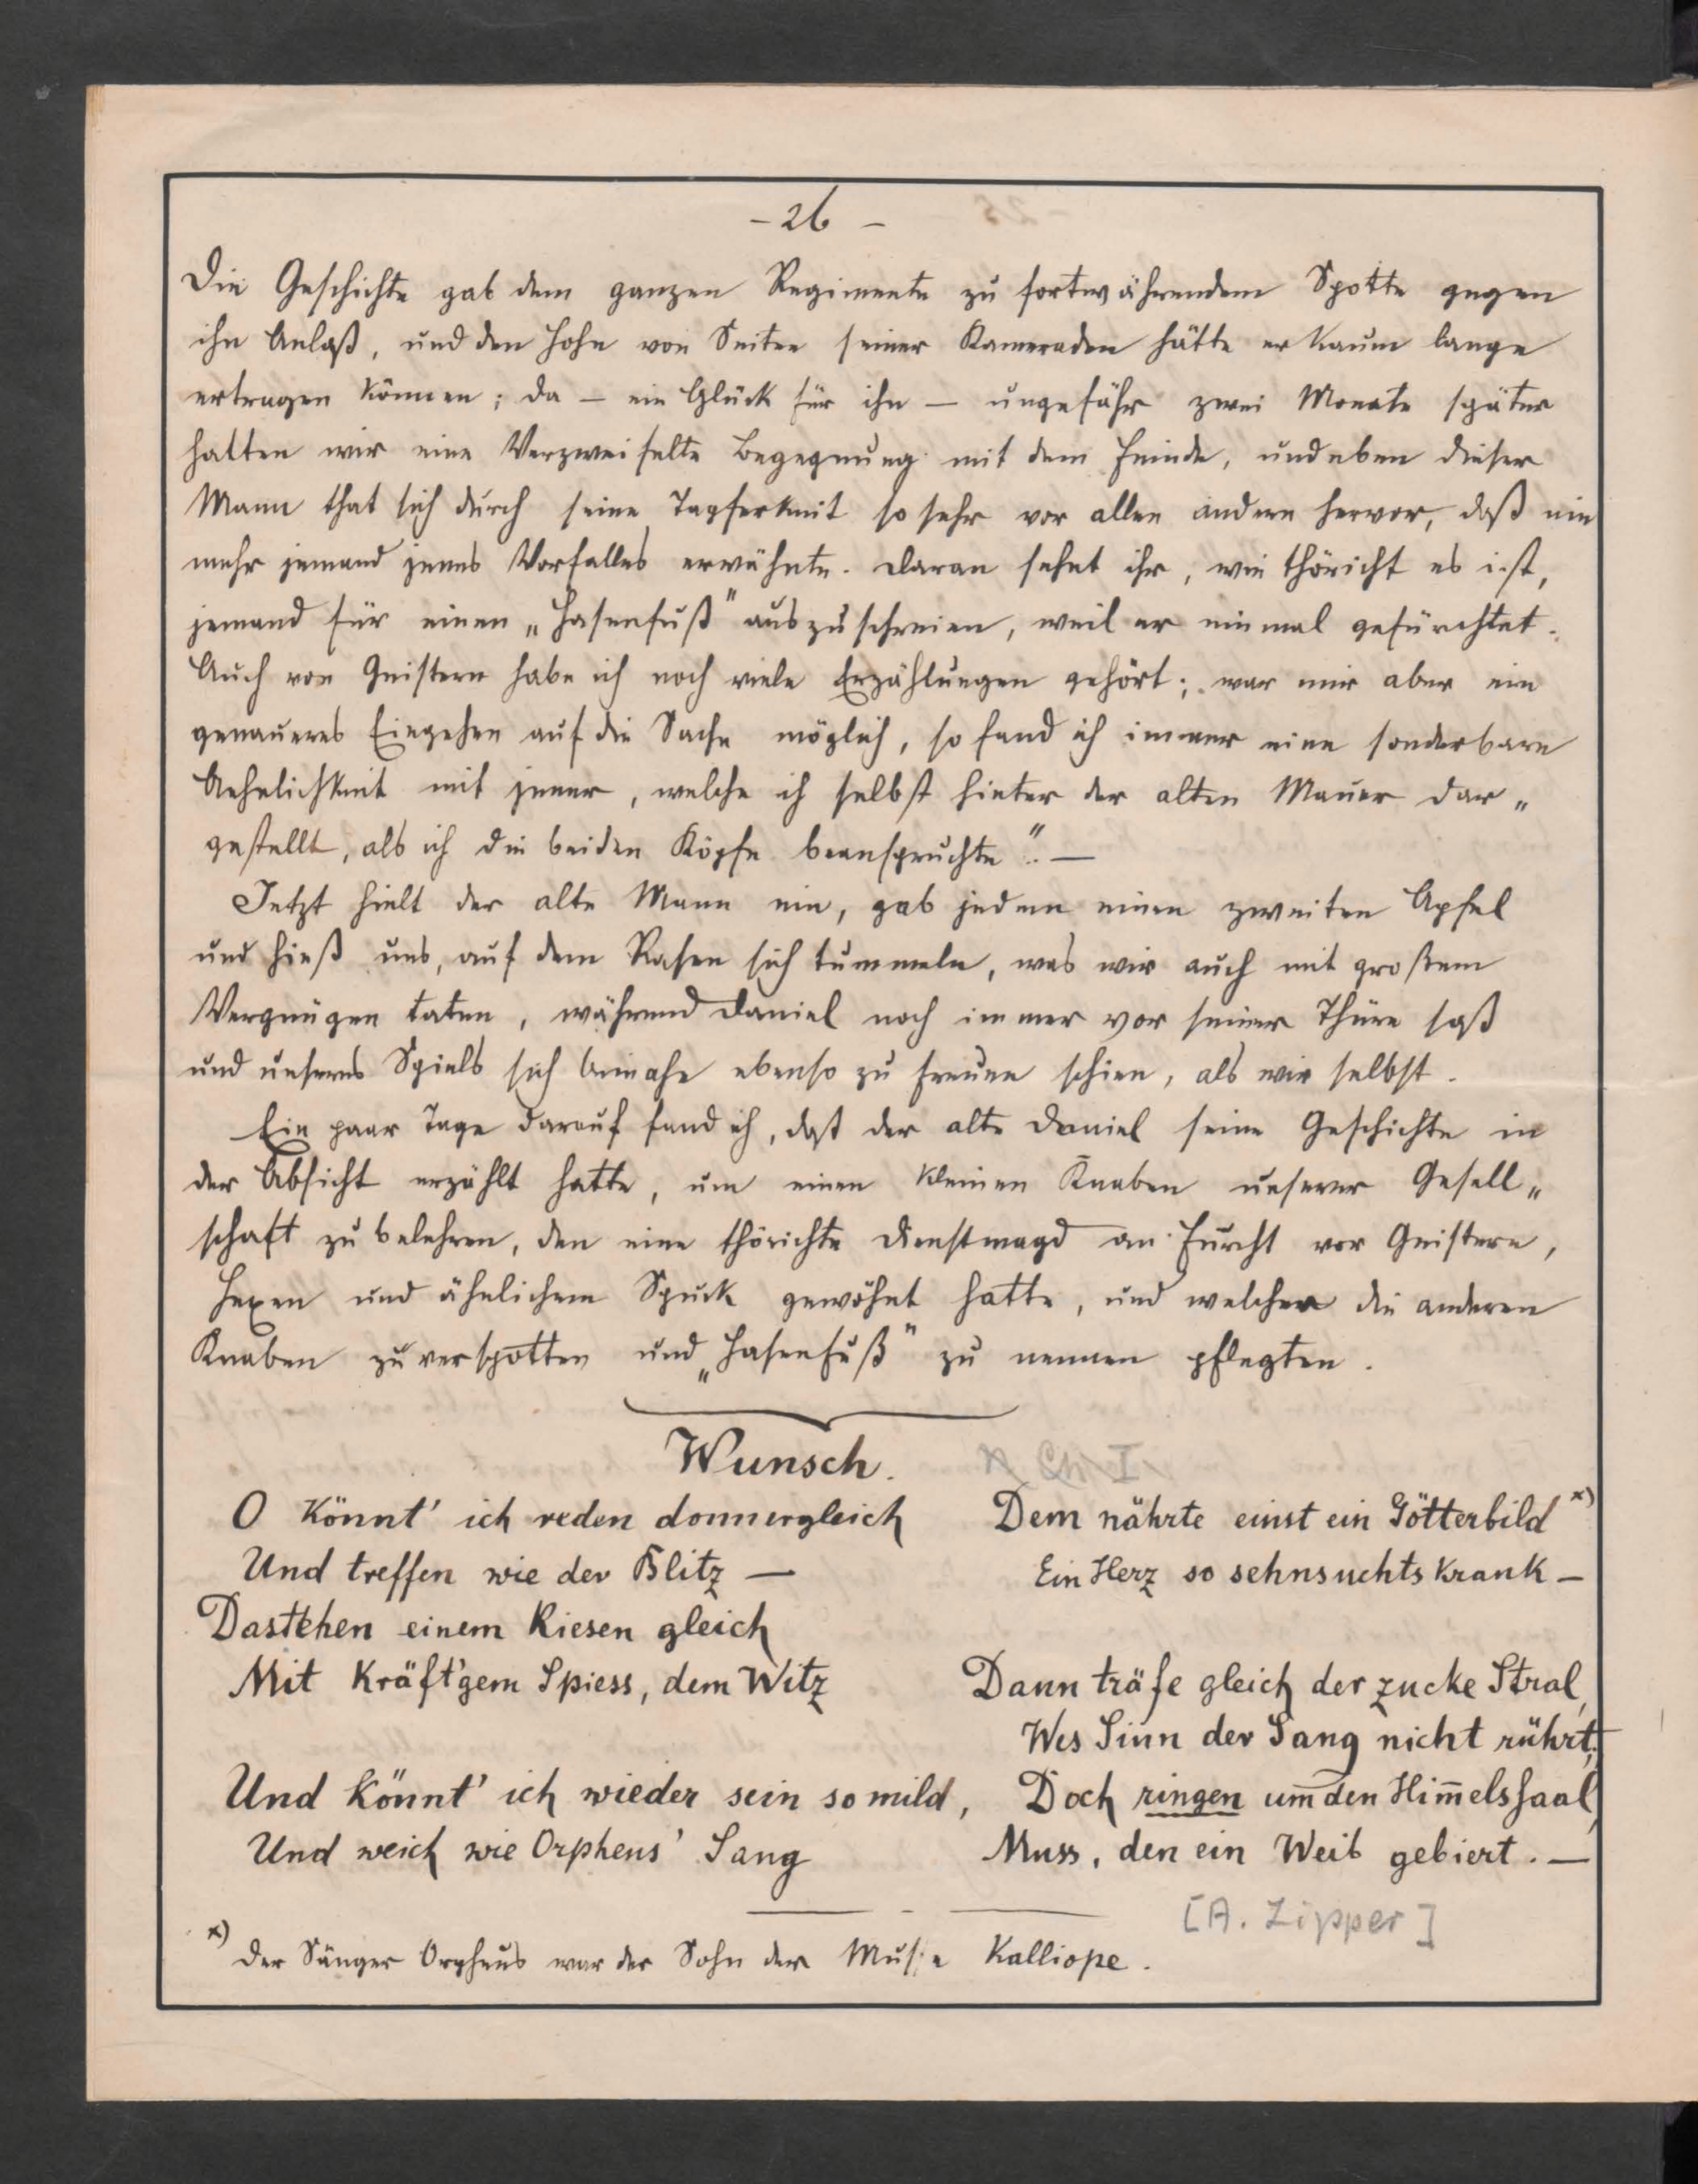 - 26 -
Die Geschichte gab dem ganzen Regimente zu fortwährendem Spotte gegen
ihn Anlaß, und den Hohn von Seiten seiner Kameraden hätte er kaum lange
ertragen können; da – ein Glück für ihn – ungefähr zwei Monate später
hatten wir eine Verzweifelte Begegnung mit dem Feinde, und eben dieser
Mann that sich durch seine Tapferkeit so sehr vor allen andern hervor, daß nie
mehr jemand jenes Vorfalles erwähnte. Daran sehet ihr, wie thöricht es ist,
jemand für einen „Hasenfuß" auszuschreien, weil er einmal gefürchtet.
Auch von Geistern habe ich noch viele Erzählungen gehört; war mir aber ein
genaueres Eingehen auf die Sache möglich, so fand ich immer eine sonderbare
Aehnlichkeit mit jener, welche ich selbst hinter der alten Mauer dar„
gestellt, als ich die beiden Köpfe beanspruchte". —
Jetzt hielt der alte Mann ein, gab jedem einen zweiten Apfel
und hieß uns, auf dem Rasen sich tummeln, was wir auch mit großem
Vergnügen taten, während Daniel noch immer vor seiner Thüre saß
und unseres Spiels sich beinahe ebenso zu freuen schien, als wir selbst.
Ein paar Tage darauf fand ich, daß der alte Daniel seine Geschichte in
der Absicht erzählt hatte, um einen kleinen Knaben unserer Gesell„
schaft zu belehren, den eine thörichte Dienstmagd an Furcht vor Geistern,
Hexen und ähnlichem Spuk gewöhnt hatte, und welchen die anderen
Knaben zu verspotten und „Hasenfuß" zu nennen pflegten.
Wunsch.
O könnt' ich reden donnergleich
Und treffen wie der Blitz —
Dastehen einem Riesen gleich
Mit kräft'gem Spiess, dem Witz
Und könnt' ich wieder sein so mild,
Und weich wie Orpheus' Sang
Dem nährte einst ein Götterbild x)
Ein Herz so sehnsuchtskrank —
Dann träfe gleich der zucke Stral,
Wes Sinn der Sang nicht rührt;
Doch ringen um den Him̄elssaal,
Muss, den ein Weib gebiert. —
[A. Zipper]
x) Der Sänger Orpheus war der Sohn der Muse Kalliope.